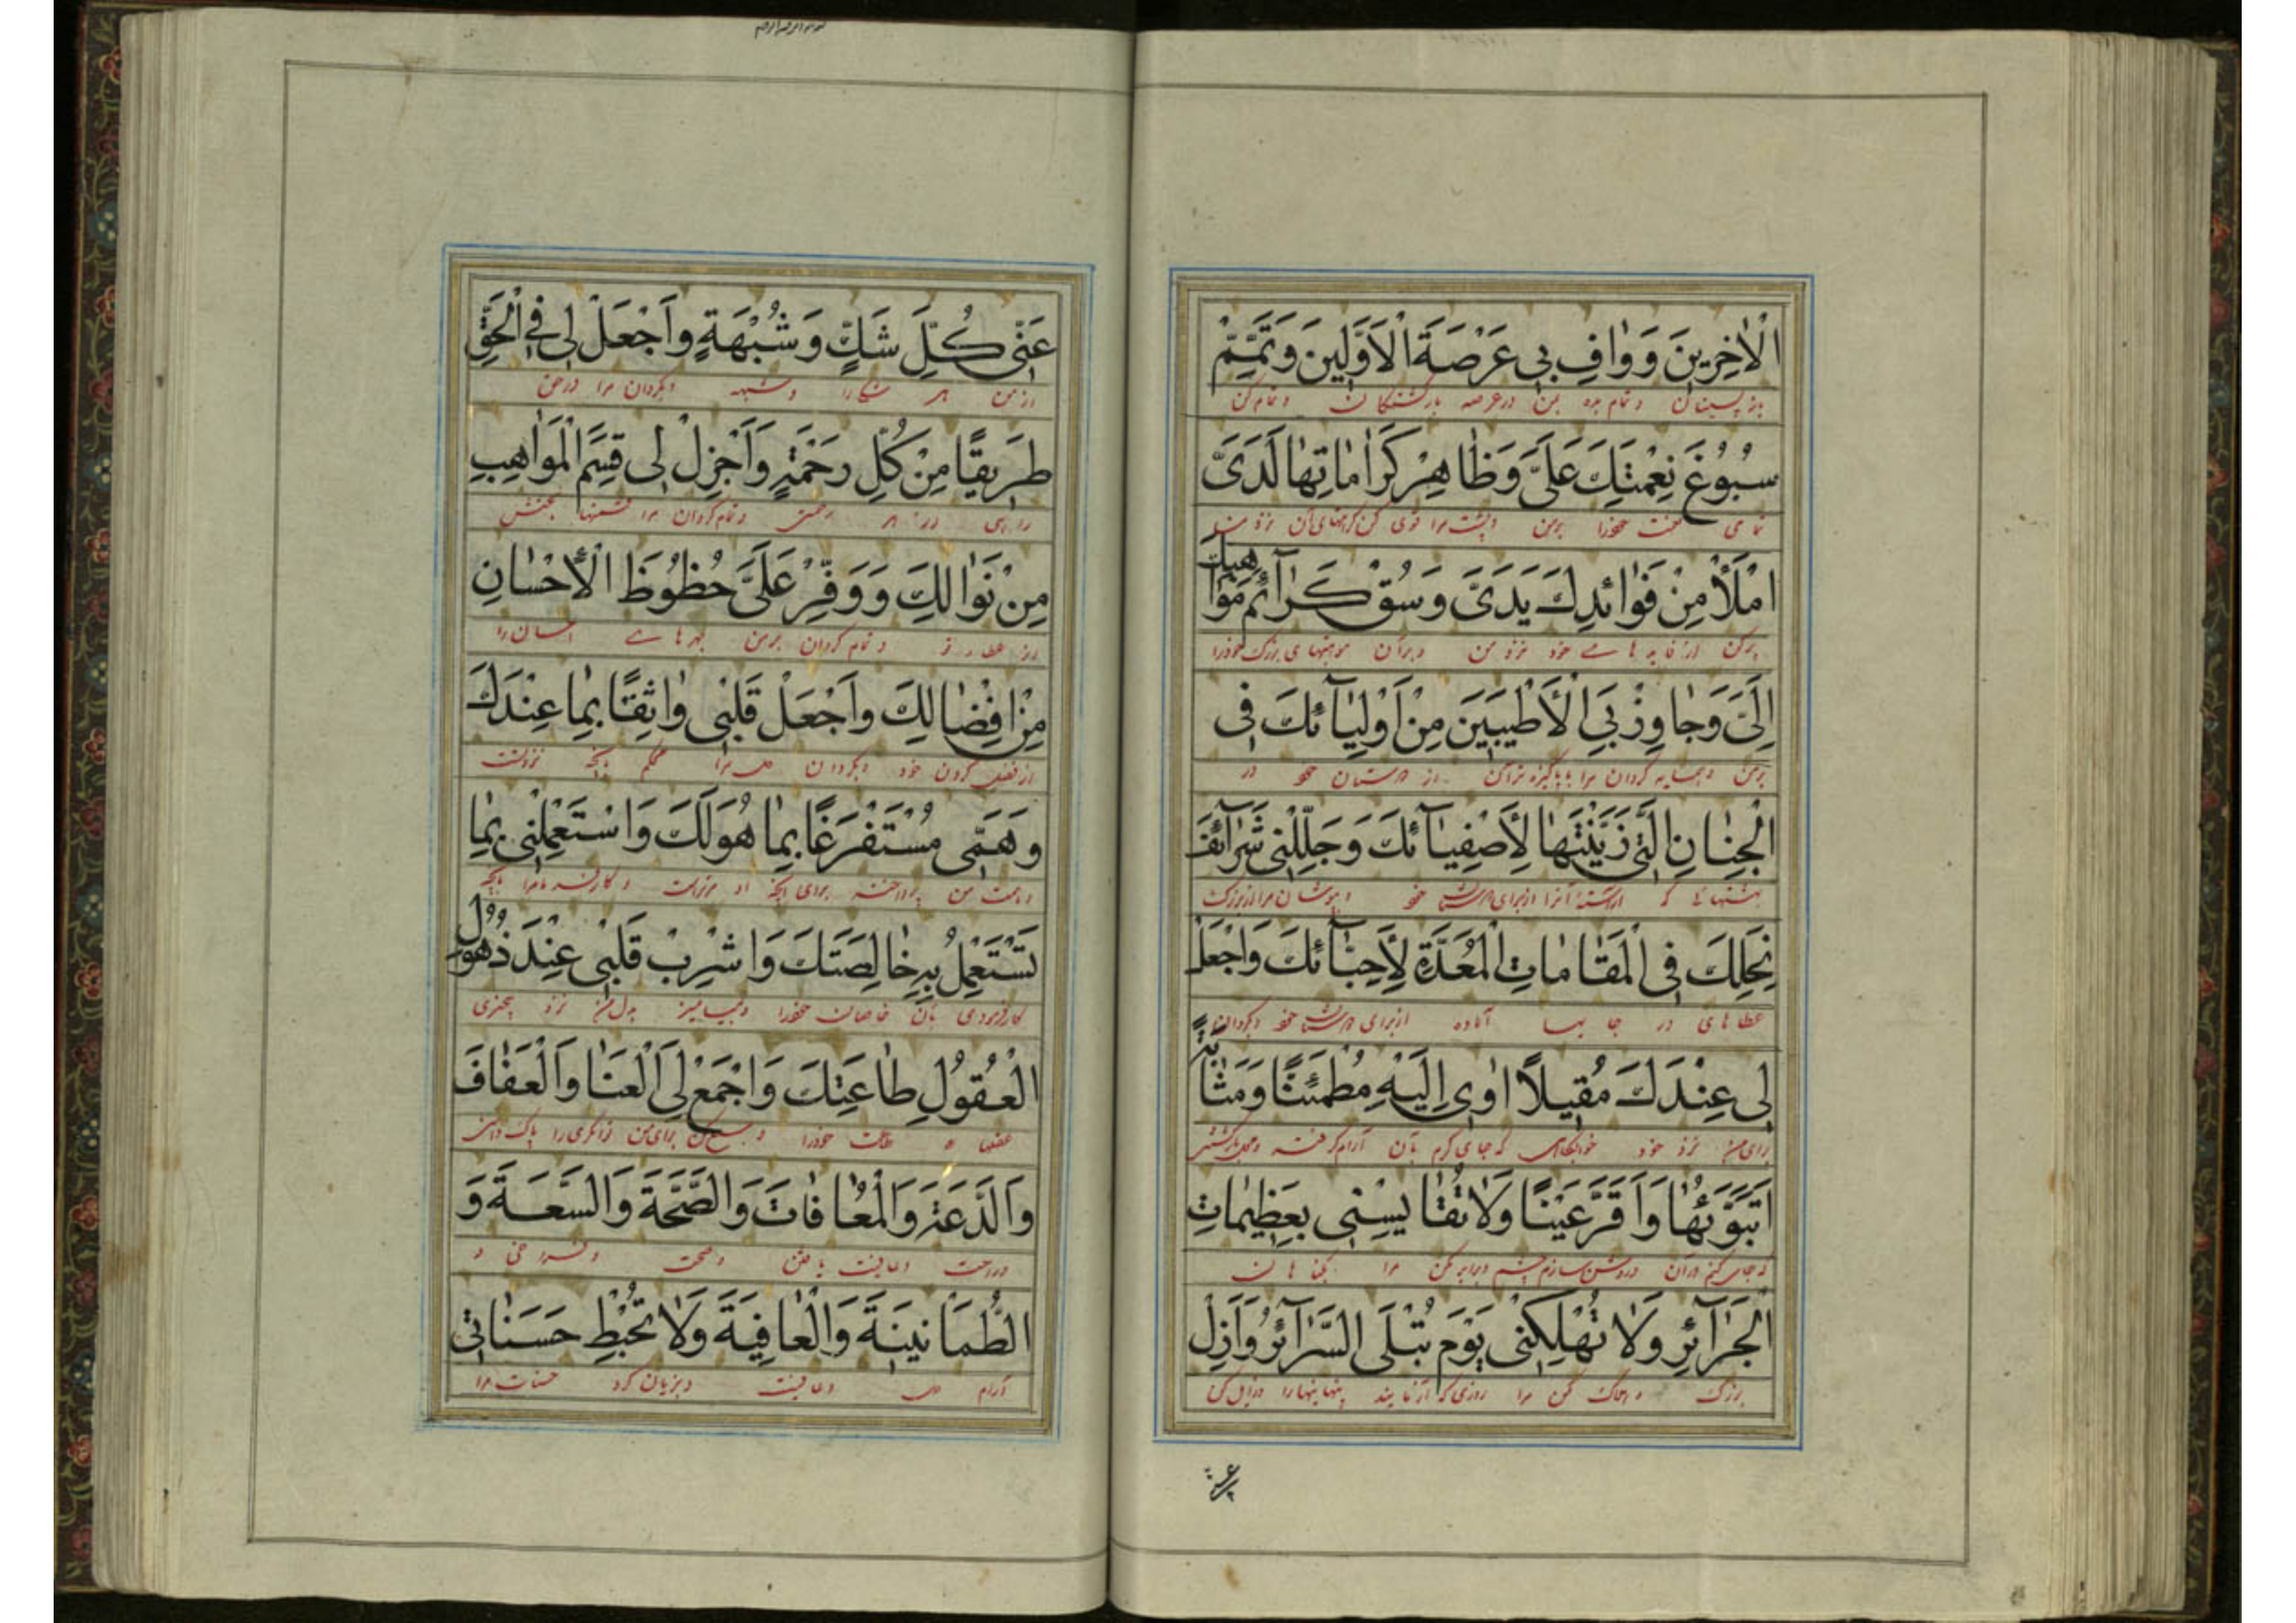 الْاٰخِرِينَ وَ وٰافِ بِى عَرْصَةَ الْاَوَّلِينَ وَ تَمِّمْ
باز پسینان و تمام بده بمن در عرصه و تمام کن
سُبُوغَ نِعْمَتِكَ عَلَىَّ وَ ظٰاهِرْ كَرٰامٰاتِهٰا لَدَىَّ
تمامی نعمت خودرا برمن و پشت مرا قوی کن
امْلَأْ مِنْ فَوٰائدِكَ يَدَىَّ وَ سُقْ كَرٰآئِمَ مَوٰاهِبِكَ
پرکن از فایده هاے خود نزد من و بران موهبتهای بزرگ خودرا
اِلَىَّ وَ جٰاوِرْ بِىَ الْأَطْيَبِينَ مِنْ اَوْلِيٰآئكَ فِى
برمن و همسایه گردان مرا با پاکیزه تران از دوستان خود در
الْجِنٰانِ الَّتِى زَيَّنْتَهٰا لِأَصْفِيٰآئكَ وَ جَلِّلْنِى شَرٰآئفَ
بهشتهائے که از برای خود و بپوشان مرا
نِحَلِكَ فِى الْمَقٰامٰاتِ الْمُعَدَّةِ لِأَحِبّٰآئكَ وَاجْعَلْ
عطاهای در جایها آماده از برای دوستان خود و بگردان
لِى عِنْدَكَ مُقِيلاً اٰوِى اِلَيْهِ مُطْمَئِنًّا وَ مَثٰابَةً
برای من نزد خود خوابگاهی که جای گیرم بآن آرام گرفته
اَتَبَوَّئُهٰا وَ اَقَرَّ عَيْنًا وَلاٰ تُقٰايِسْنِى بِعَظِيمٰاتِ
که جای گیرم در آن و روشن سازم چشم و برابر مکن مرا بگناهان
الْجَرٰآئرِ وَلاٰ تُهْلِكْنِى يَوْمَ تُبْلَى السَّرٰآئرُ وَ اَزِلْ
بزرگ و هلاک مکن مرا روزی که آزمایند پنهانیها را و زایل کن
عَنِّى كُلَّ شَكٍّ وَ شُبْهَةٍ وَاجْعَلْ لِى فِى الْحَقِّ
از من هر شکرا و شبهه و بگردان مرا در حق
طَرِيقًا مِنْ كُلِّ رَحْمَةٍ وَ اَجْزِلْ لِى قِسَمَ الْمَوٰاهِبِ
راهی از هر رحمتی و تمام گردان مرا قسمتها بخشش
مِنْ نَوٰالِكَ وَ وَفِّرْ عَلَىَّ حُظُوظَ الْأِحْسٰانِ
از عطاء تو و تمام گردان برمن بهرهاے احسان را
مِنْ اِفْضٰالِكَ وَاجْعَلْ قَلْبِى وٰاثِقًا بِمٰا عِنْدَكَ
از فضل کردن خود و بگردان دل مرا محکم بآنچه نزد تست
وَ هَمِّى مُسْتَفْرَغًا بِمٰا هُوَ لَكَ وَ اسْتَعْمِلْنِى بِمٰا
و همت من پرداخته برای آنچه او مرتراست و کارفرما مرا بآنچه
تَسْتَعْمِلُ بِهِ خٰالِصَتَكَ وَ اشْرِبْ قَلْبِى عِنْدَ ذُهُولِ
کارفرمودی بآن خاصان خودرا و بیامیز بدل من نزد بیخبری
الْعُقُولِ طٰاعَتِكَ وَاجْمَعْ لِىَ الْغَنَا وَالْعَفٰافَ
عقلها طاعت خودرا و جمع کن برای من توانگری را پاک دامنی
وَالدَّعَةَ وَالْمُعٰافٰاتَ وَالصِّحَّةَ وَالسَّعَةَ وَ
و راحت و عافیت یافتن و صحت و فراخی و
الطُّمَأْنِينَةَ وَالْعٰافِيَةَ وَلاٰ تُحْبِطْ حَسَنٰاتِى
آرام دل و عافیت و بزیان مبر حسنات مرا